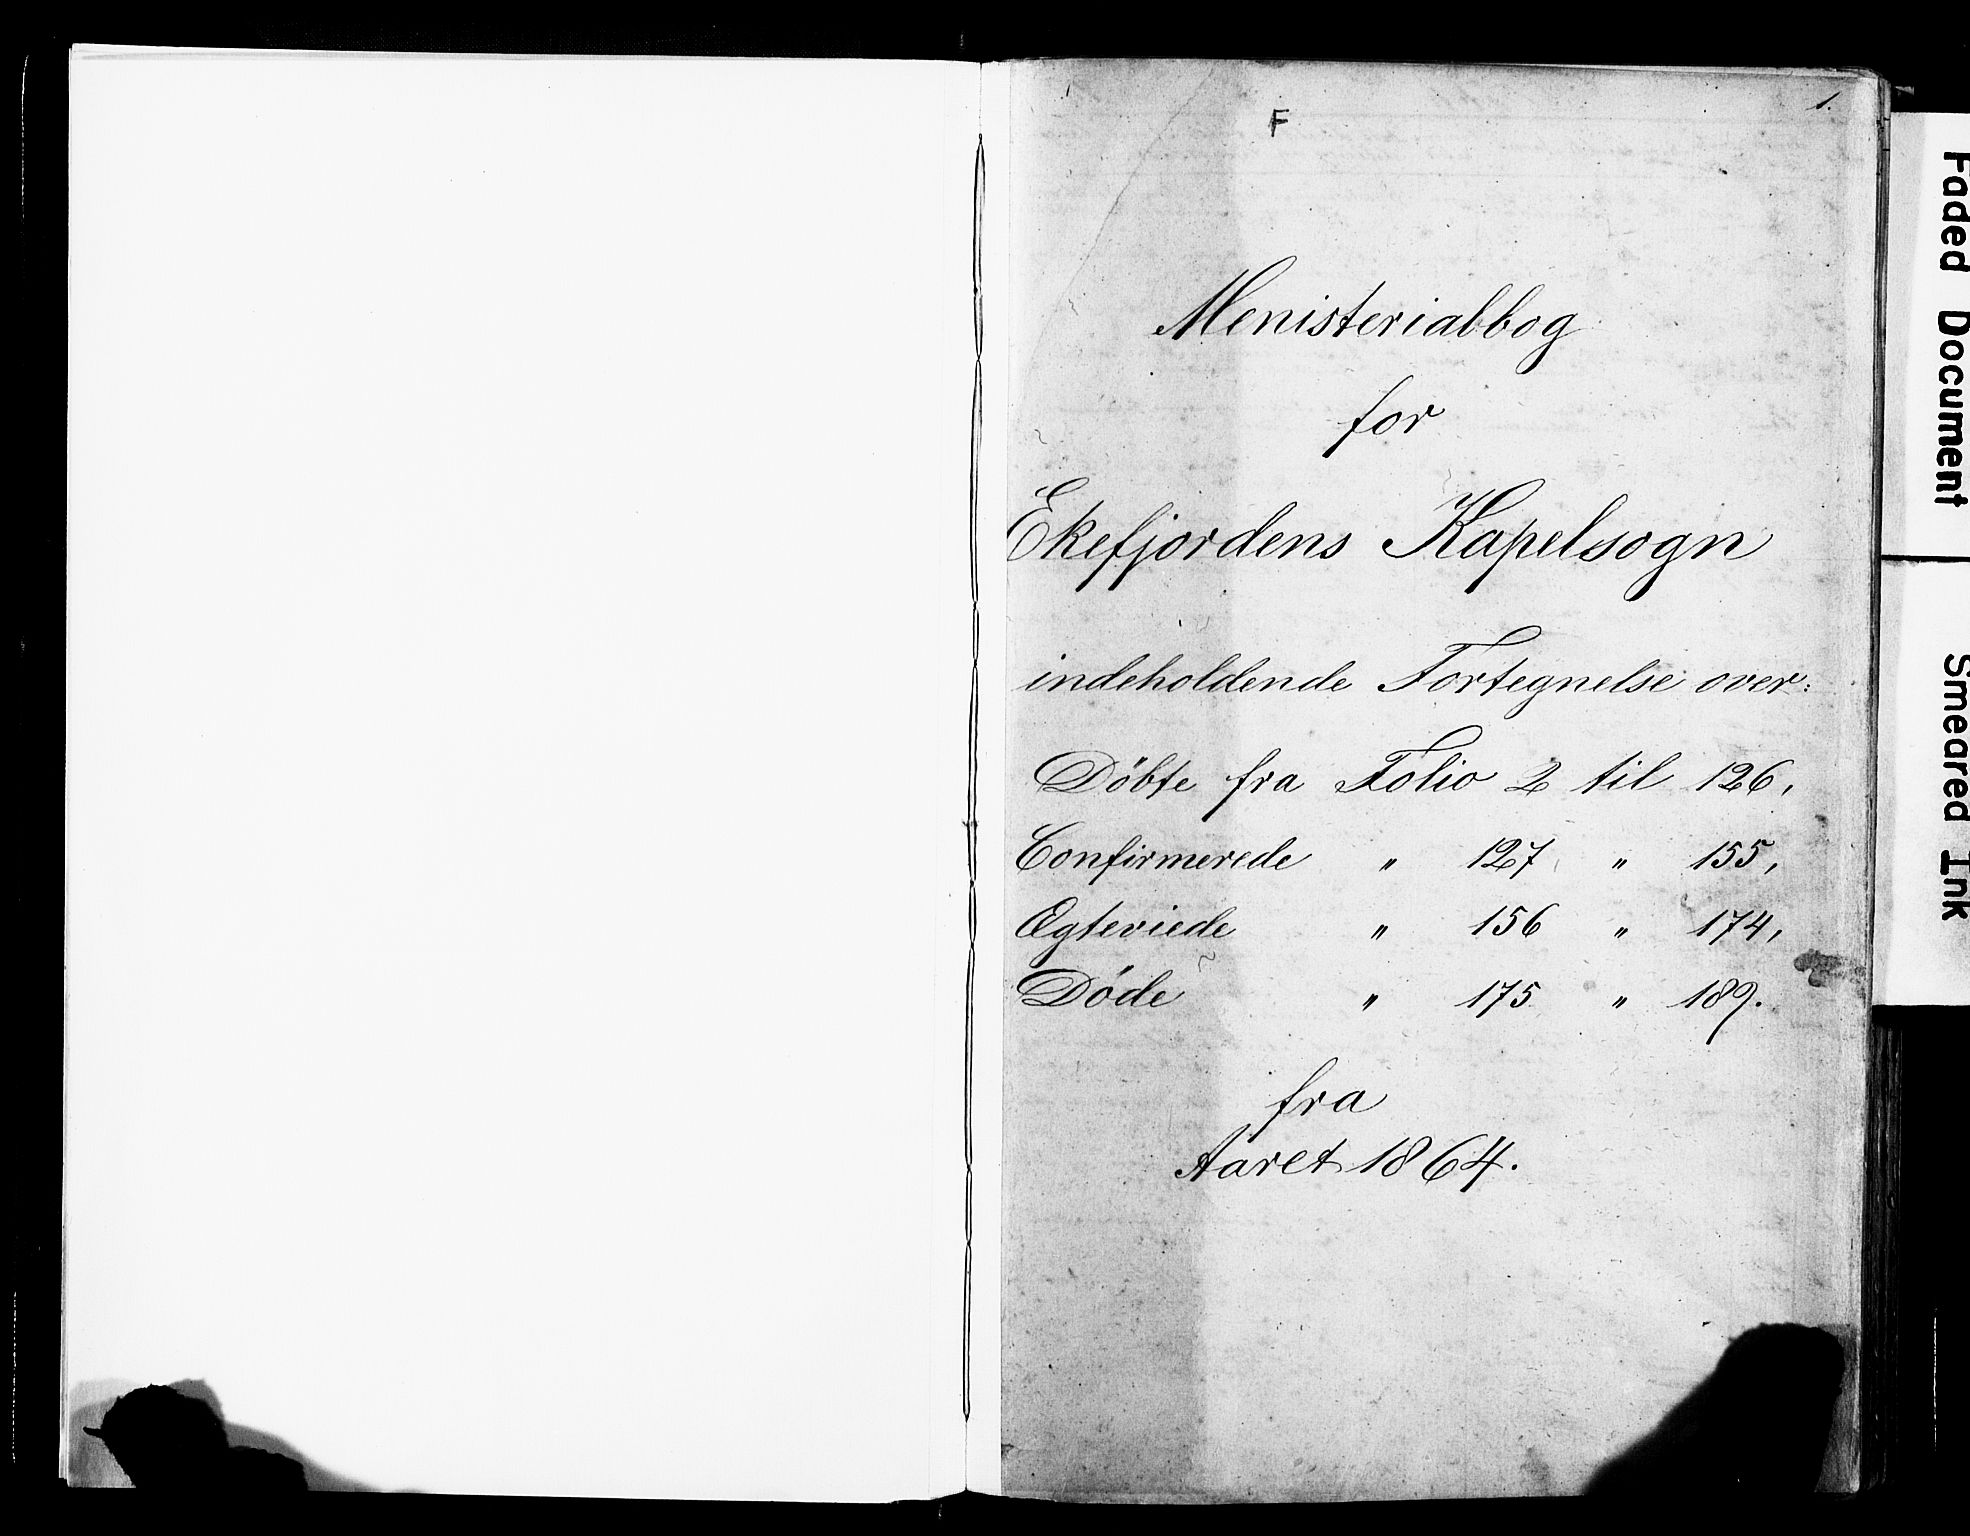 F
1.
Menisterialbog
for
Ekefjordens Kapelsogn
indeholdende Fortegnelse over:
Döbte fra Folio 2 til 126,
Confirmerede " 127 " 155,
Ægteviede " 156 " 174,
Döde " 175 " 189.
fra
Aaret 1864.
Faded Document
Smeared Ink